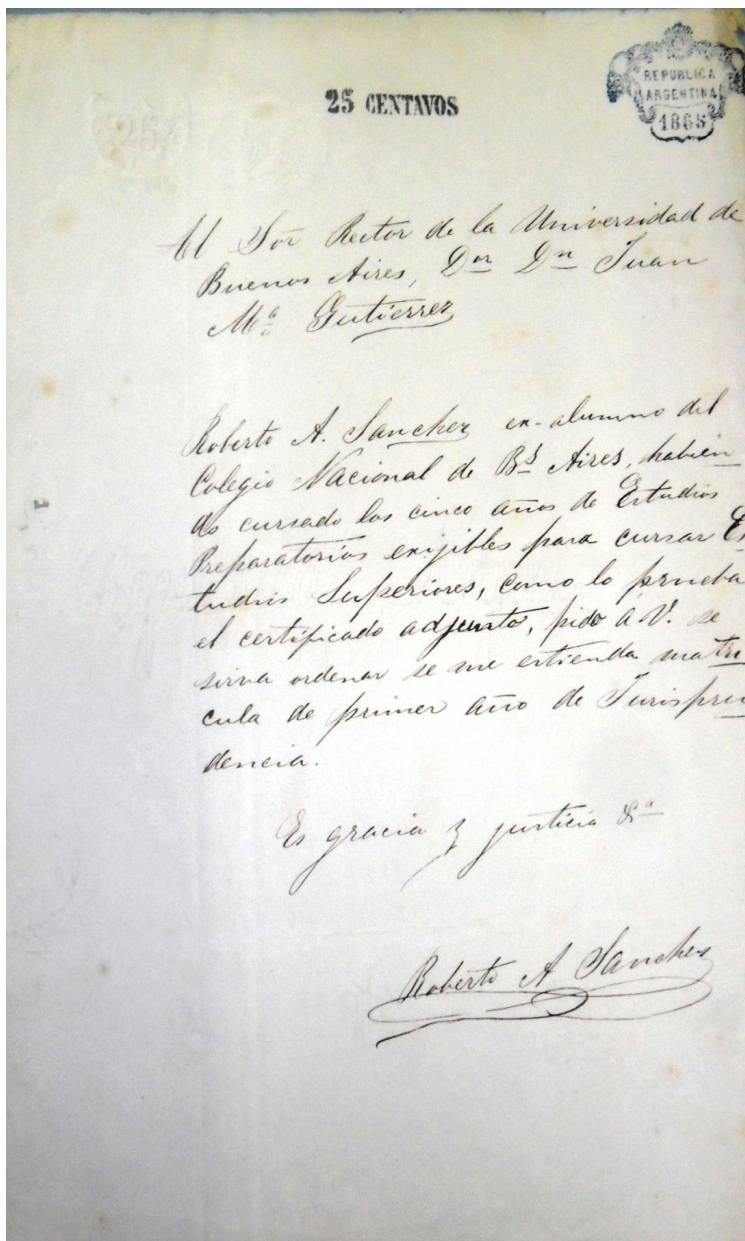 25 CENTAVOS
REPUBLICA
ARGENTINA
1865
Al Sor Rector de la Universidad de
Buenos Aires, Dor Dn Juan
Ma Gutierrez
Roberto A. Sanchez ex-alumno del
Colegio Nacional de Bs Aires, habien
do cursado los cinco años de Estudios
Preparatorios exijibles para cursar Es
tudios Superiores, como lo prueba
el certificado adjunto, pido a V. se
sirva ordenar se me estienda matri
cula de primer año de Jurispru
dencia.
Es gracia y justicia &a
Roberto A Sanchez